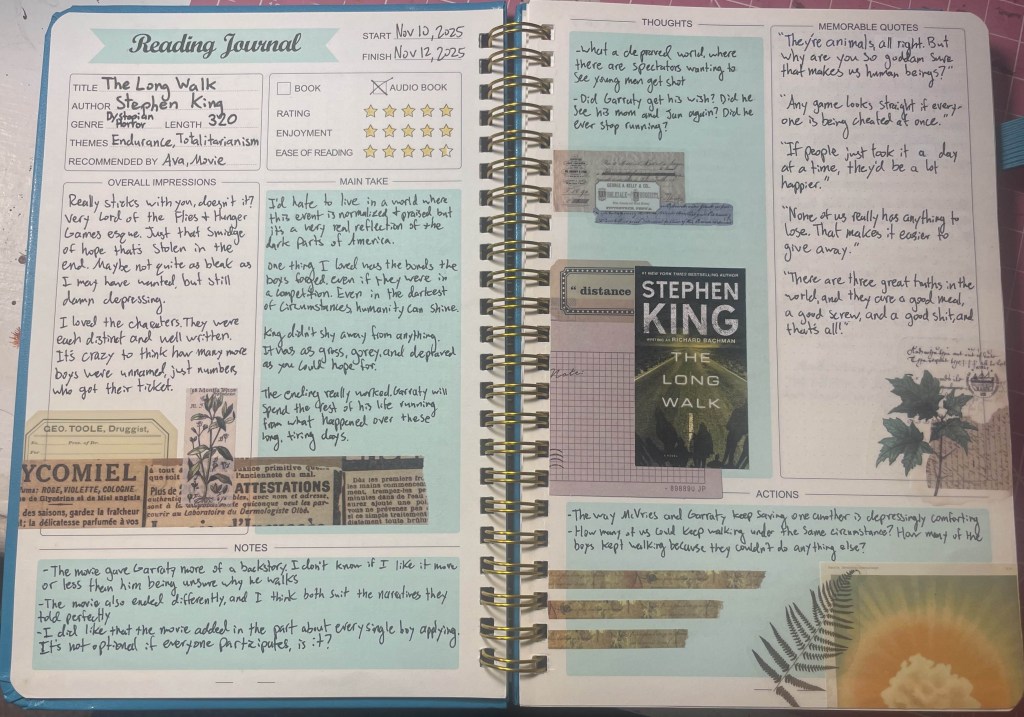 Reading Journal
START Nov 10, 2025
FINISH Nov 12, 2025
TITLE The Long Walk
AUTHOR Stephen King
GENRE Dystopian Horror LENGTH 320
THEMES Endurance, Totalitarianism
RECOMMENDED BY Ava, Movie
BOOK AUDIO BOOK
RATING
ENJOYMENT
EASE OF READING
OVERALL IMPRESSIONS
Really sticks with you, doesn't it?
Very Lord of the Flies + Hunger
Games esque. Just that smidge
of hope that's stolen in the
end. Maybe not quite as bleak as
I may have wanted, but still
damn depressing.
I loved the They were
each distinct and well written.
It's crazy to think how many more
boys were unnamed, just numbers
who got their ticket.
MAIN TAKE
I'd hate to live in a world where
this event is normalized + praised, but
it's a very real reflection of the
dark parts of America.
One thing I loved was the bonds the
boys forged, even if they were in
a competition. Even in the darkest
of circumstances, humanity can shine.
King didn't shy away from anything.
It was as gross, gorey, and depraved
as you could hope for.
The ending really worked. Garraty will
spend the rest of his life running
from what happened over these
long, tiring days.
GEO. TOOLE, Druggist,
YCOMIEL
ROSE, VIOLETTE, COLOGNE.
de Glycérine et de Miel anglais
des saisons, gardez la fraîcheur
et; la délicatesse parfumée à vos
à tout
que soit
Plus de
ATTESTATIONS
avec nom et adresse,
courir au Laboratoire du Dermologiste Olbé.
NOTES
- The movie gave Garraty more of a backstory. I don't know if I like it more
or less than him being unsure why he walks
- The movie also ended differently, and I think both suit the narratives they
told perfectly
- I did like that the movie added in the part about every single boy applying.
It's not optional if everyone participates, is it?
THOUGHTS
- What a depraved world, where
there are spectators wanting to
see young men get shot
- Did Garraty get his wish? Did he
see his mom and Jan again? Did he
ever stop running?
GEORGE A. KELLY & CO.
" distance
#1 NEW YORK TIMES BESTSELLING AUTHOR
STEPHEN
KING
WRITING AS RICHARD BACHMAN
THE
LONG
WALK
MEMORABLE QUOTES
"They're animals, all right. But
why are you so goddam sure
that makes us human beings?"
"Any game looks straight if every-
one is being cheated at once."
"If people just took it a day
at a time, they'd be a lot
happier."
"None of us really has anything to
lose. That makes it easier to
give away."
"There are three great truths in the
world, and they are a good meal,
a good screw, and a good shit, and
that's all!"
ACTIONS
- The way McVries and Garraty keep saving one another is depressingly comforting
- How many of us could keep walking under the same circumstance? How many of the
boys kept walking because they couldn't do anything else?